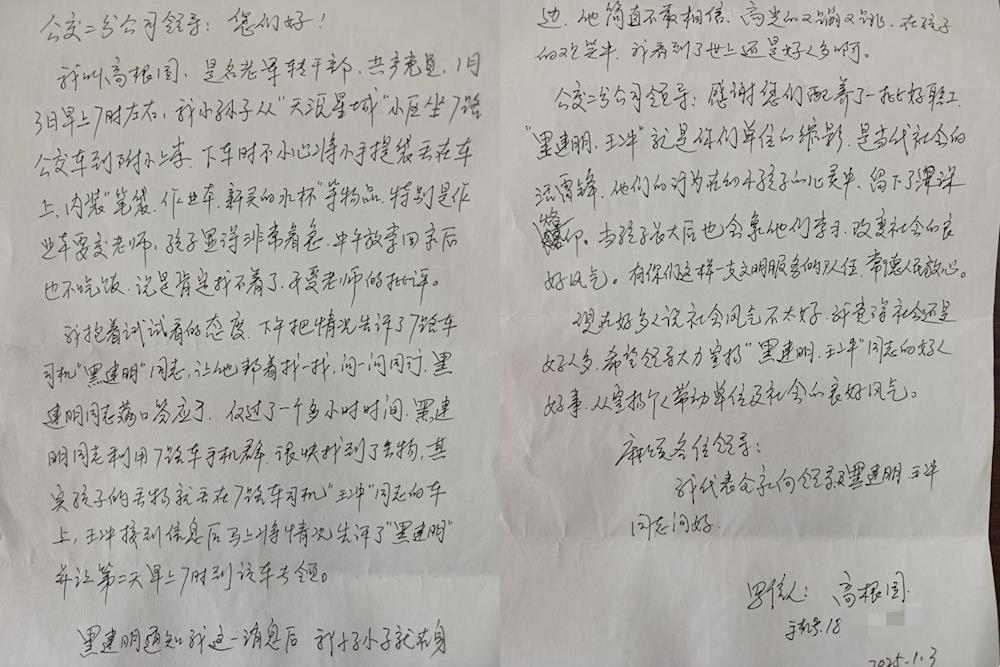 公交二分公司领导：您们好！
我叫高根国，是名老军转干部，共产党员，1月
3日早上7时左右，我小孙子从“天源星城”小区坐7路
公交车到附小上学，下车时不小心将小手提袋丢在车
上，内装“笔袋、作业本、新买的水杯”等物品，特别是作
业本要交老师，孩子显得非常着急，中午放学回家后
也不吃饭，说是肯定找不着了，要受老师的批评。
我抱着试试看的态度，下午把情况告诉了7路车
司机“黑建明”同志，让他帮着找一找，问一问同行，黑
建明同志满口答应于，仅过了一个多小时时间，黑建
明同志利用7路车手机群，很快找到了失物，其
实孩子的丢物就丢在7路车司机“王冲”同志的车
上，王冲接到信息后马上将情况告诉了“黑建明”
并让第二天早上7时到该车去领。
黑建明通知我这一消息后 我小孙子就在身
边，他简直不敢相信，高兴的又蹦又跳，在孩子
的欢笑中，我看到了世上还是好人多啊。
公交二分公司领导：感谢您们配养了一批好职工
“黑建明，王冲”就是你们单位的缩影，是当代社会的
活雷锋，他们的行为在幼小孩子的心灵中，留下了深深
烙印。当孩子长大后也会象他们学习，改变社会的良
好风气。有你们这样一支文明服务的队伍，常德人民放心。
现在好多人说社会风气不太好，我觉得社会还是
好人多，希望领导大力宣扬“黑建明、王冲”同志的好人
好事，从宣扬个人带动单位及社会的良好风气。
麻烦各位领导：
我代表全家向领导及黑建明 王冲
同志问好。
写信人：高根国
手机号：18
2025.1.3